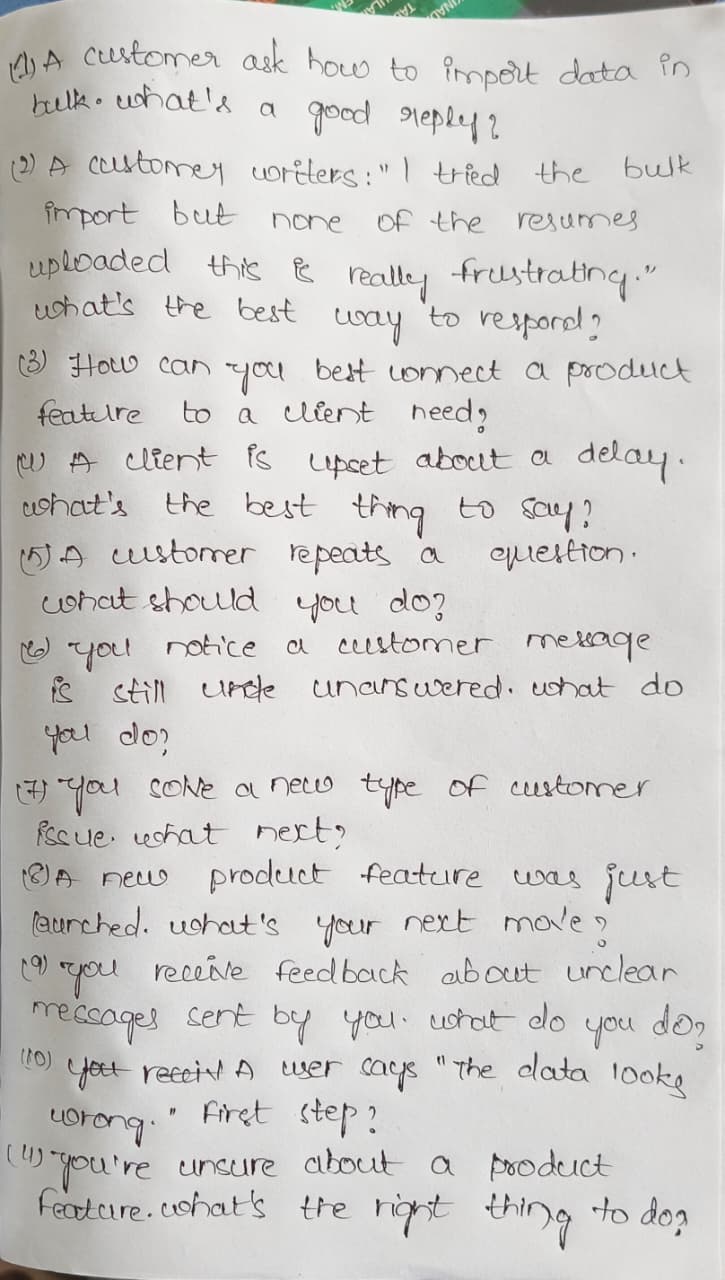 (1) A customer ask how to import data in
bulk. what's a good reply?
(2) A customer writers: "I tried the bulk
import but none of the resumes
uploaded this is really frustrating."
what's the best way to respond?
(3) How can you best connect a product
feature to a client need?
(4) A client is upset about a delay.
what's the best thing to say?
(5) A customer repeats a question.
what should you do?
(6) you notice a customer message
is still unanswered. what do
you do?
(7) you solve a new type of customer
issue. what next?
(8) A new product feature was just
launched. what's your next move?
(9) you receive feedback about unclear
messages sent by you. what do you do?
(10) A user says "The data looks
wrong." First step?
(11) you're unsure about a product
feature. what's the right thing to do?